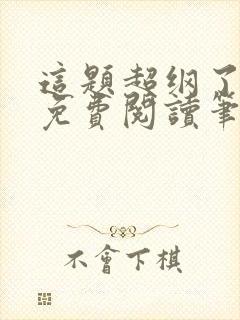 這題超纲了
免費閱讀筆
不會下棋